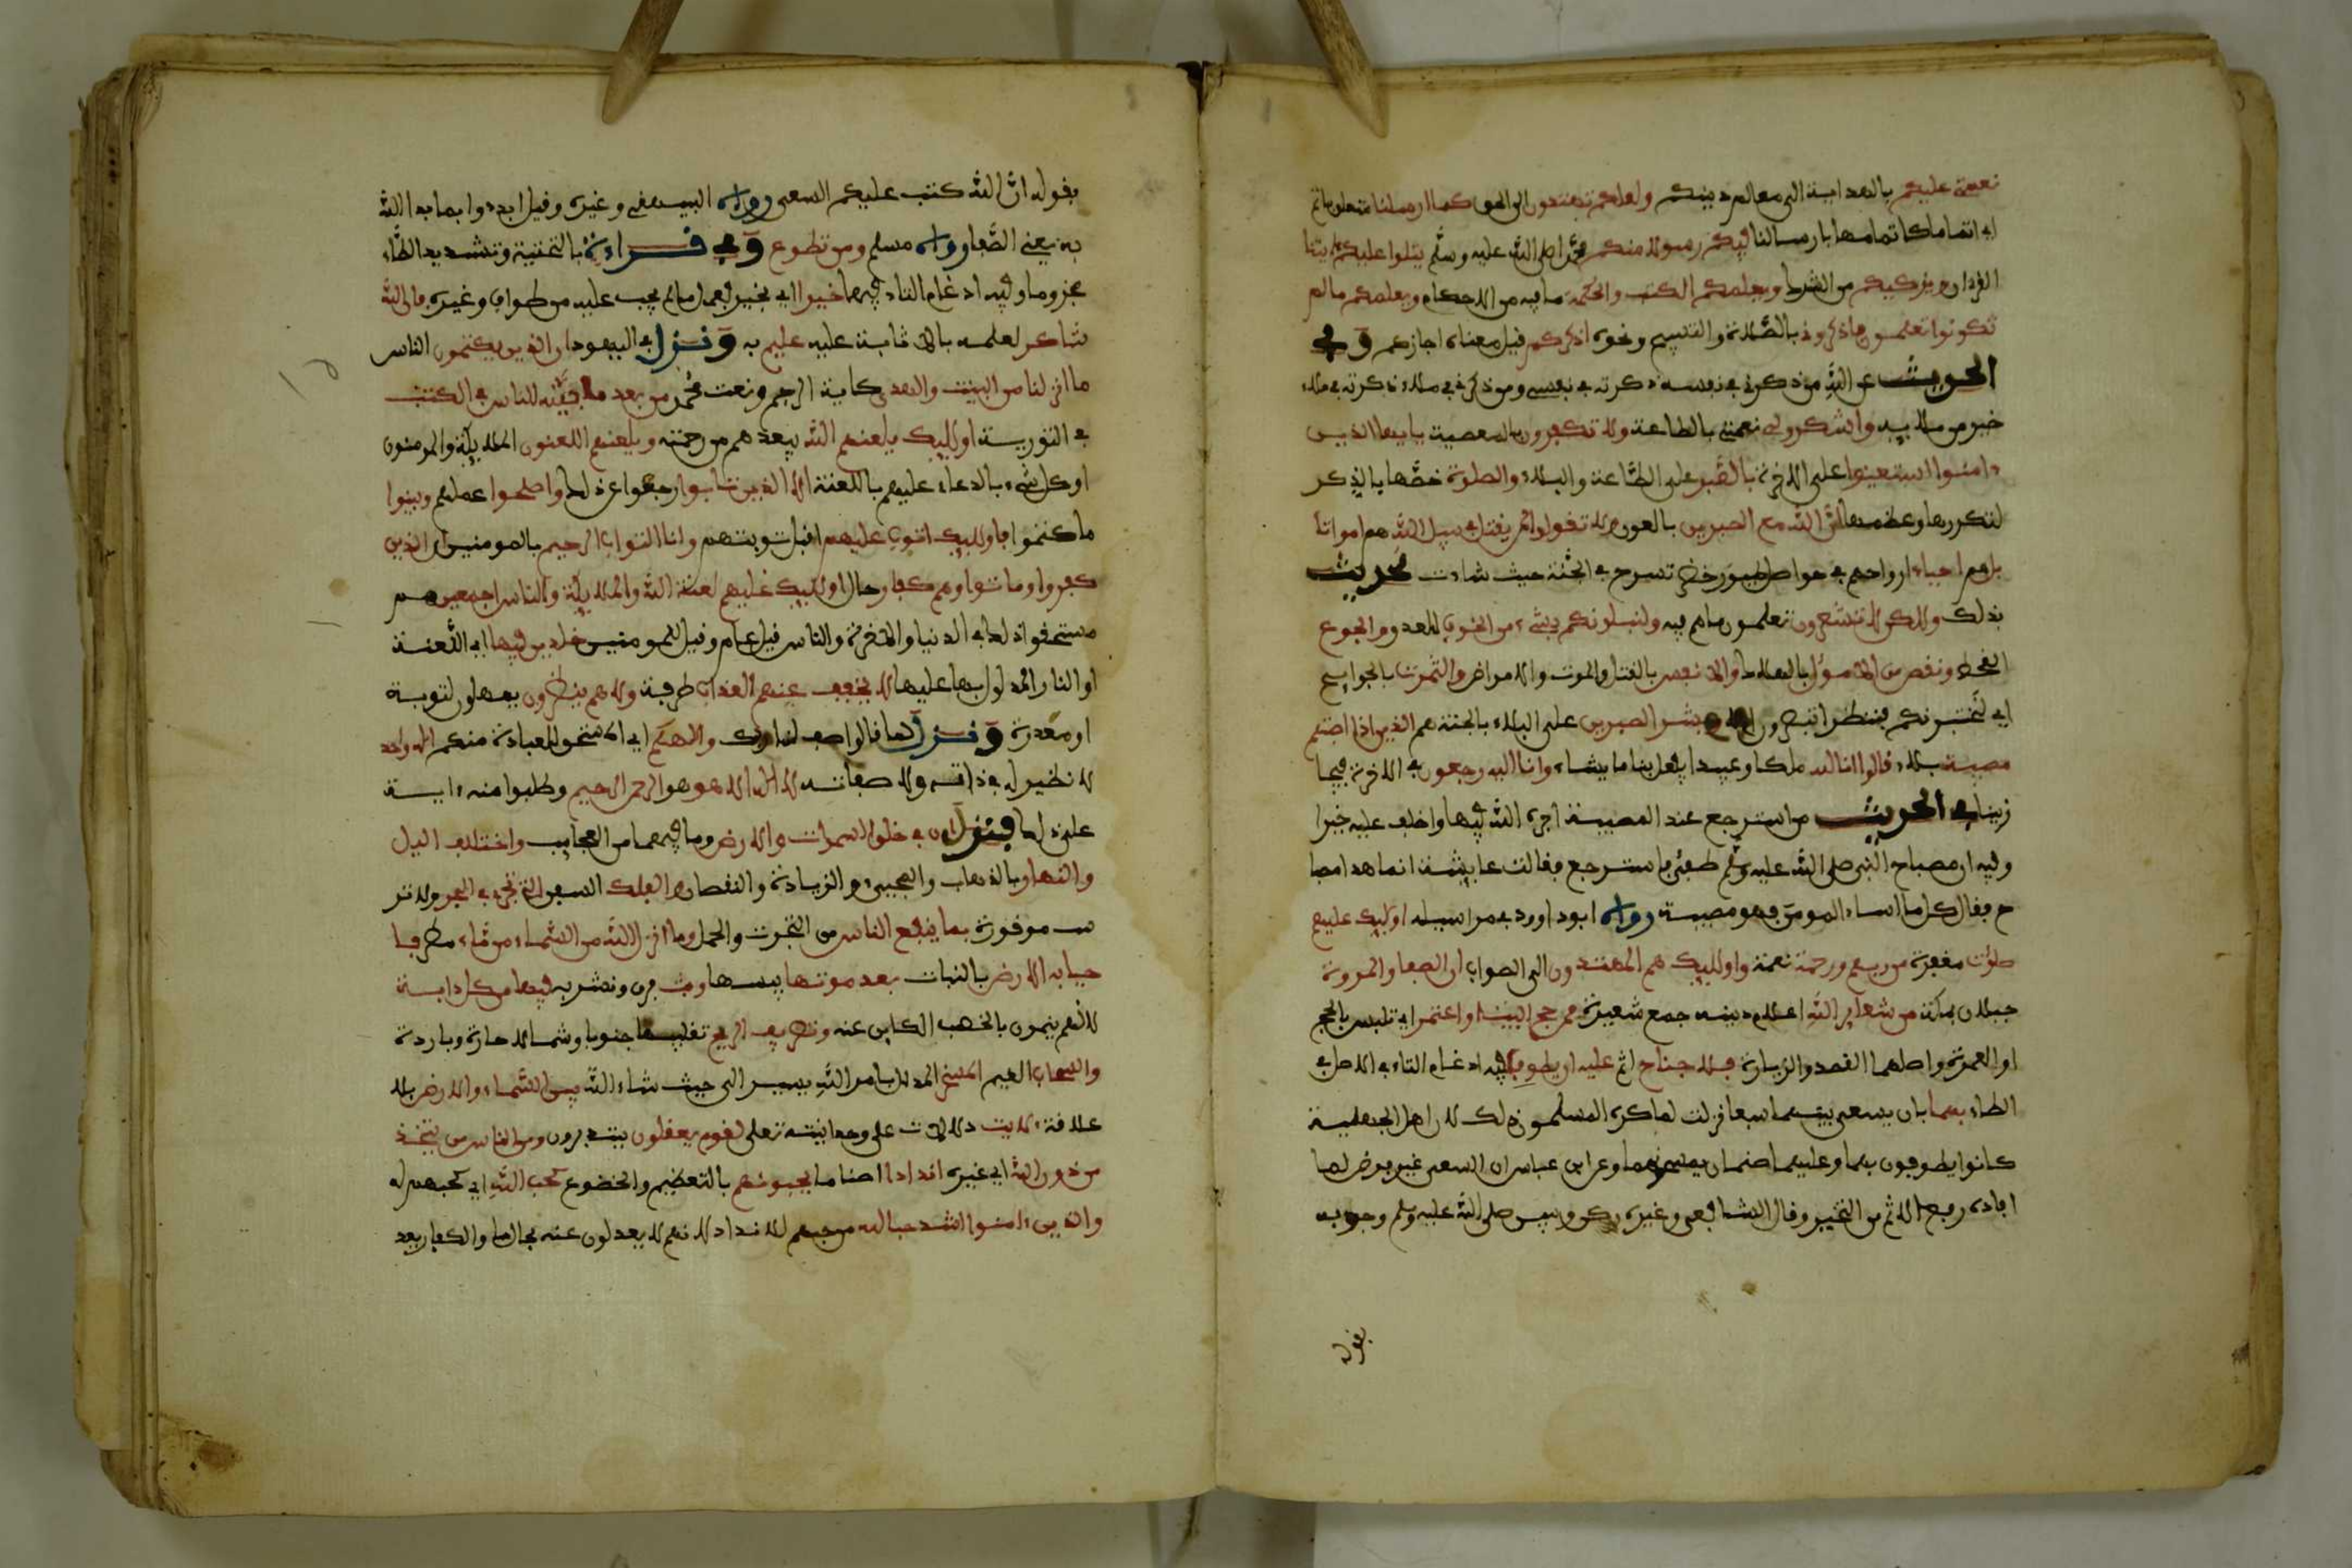 نعمتي عليكم بالهداية الى معالم دينكم ولعلكم تهتدون الى الحق كما ارسلنا متعلق باتم
اي اتماما كاتمامها بارسالنا فيكم رسولا منكم محمدا صلى الله عليه وسلم يتلوا عليكم ءايتنا
القرءان ويزكيكم من الشرك ويعلمكم الكتب والحكمة ما فيه من الاحكام ويعلمكم ما لم
تكونوا تعلمون فاذكروني بالصلاة والتسبيح ونحوه اذكركم قيل معناه اجازكم وفي
الحديث عن الله من ذكرني في نفسه ذكرته في نفسي ومن ذكرني في ملاء ذكرته في ملاء
خير من ملايه واشكروا لي نعمتي بالطاعة ولا تكفرون بالمعصية يايها الذين
ءامنوا استعينوا على الاخرة بالصبر على الطاعة والبلاء والصلوة خصها بالذكر
لتكررها وعظمها ان الله مع الصبرين بالعون ولا تقولوا لمن يقتل في سبيل الله هم اموات
بل هم احياء ارواحهم في حواصل طيور خضر تسرح في الجنة حيث شاءت لحديث
بذلك ولكن لا تشعرون تعلمون ما هم فيه ولنبلونكم بشيء من الخوف للعدو والجوع
القحط ونقص من الاموال بالهلاك والانفس بالقتل والموت والامراض والثمرت بالجوايح
اي لنختبرنكم فننظر اتصبرون ام لا وبشر الصبرين على البلاء بالجنة هم الذين اذا اصبتهم
مصيبة بلاء قالوا انا لله ملكا وعبيدا يفعل بنا ما يشاء وانا اليه رجعون في الاخرة فيجا
زينا في الحديث من استرجع عند المصيبة اجره الله فيها واخلف عليه خيرا
وفيه ان مصباح النبي صلى الله عليه وسلم طفئ فاسترجع فقالت عايشة انما هذا مصبا
ح فقال كل ما اساء المومن فهو مصيبة رواه ابو داوود في مراسيله اوليك عليهم
صلوت مغفرة من ربهم ورحمة نعمة واوليك هم المهتدون الى الصواب ان الصفا والمروة
جبلان بمكة من شعاير الله اعلام دينه جمع شعيرة فمن حج البيت او اعتمر اي تلبس بالحج
او العمرة واصلهما القصد والزيارة فلا جناح اثم عليه ان يطوف فيه ادغام التاء في الاصل في
الطاء بهما بان يسعى بينهما سبعا نزلت لما كره المسلمون ذلك لان اهل الجهلية
كانوا يطوفون بهما وعليهما صنمان يمسحونهما وعن ابن عباس ان السعي غير فرض لما
افاده رفع الاثم من التخيير وقال الشافعي وغيره ركن وبين صلى الله عليه وسلم وجوبه
بقوله
بقوله ان الله كتب عليكم السعي رواه البيهقي وغيره وقيل ابدءوا بما بدا الله
به يعني الصفا رواه مسلم ومن تطوع وفي قراءة بالتحتية وتشديد الطاء
مجزوما وفيه ادغام التاء فيها خيرا اي بخير بعمل ما لم يجب عليه من طواف وغيره فان الله
شاكر لعمله بالاثابة عليه عليم به ونزل في اليهود ان الذين يكتمون الناس
ما انزلنا من البينت والهدى كاية الرجم ونعت محمد من بعد ما بينه للناس في الكتب
في التورية اوليك يلعنهم الله يبعدهم من رحمته ويلعنهم اللعنون الملايكة والمومنون
او كل شيء بالدعاء عليهم باللعنة الا الذين تابوا رجعوا عن ذلك واصلحوا عملهم وبينوا
ما كتموا فاوليك اتوب عليهم اقبل توبتهم وانا التواب الرحيم بالمومنين ان الذين
كفروا وماتوا وهم كفار حال اوليك عليهم لعنة الله والملايكة والناس اجمعين هم
مستحقوا ذلك في الدنيا والاخرة والناس قيل عام وقيل المومنين خلدين فيها اي اللعنة
او النار المدلول بها عليها لا يخفف عنهم العذاب طرفة ولا هم ينظرون يمهلون لتوبة
او معذرة ونزل لما قالوا صف لنا ربك والهكم اي المستحق للعبادة منكم اله واحد
لا نظير له في ذاته ولا صفاته لا اله الا هو هو الرحمن الرحيم وطلبوا منه ءاية
على ذلك فنزل ان في خلق السموات والارض وما فيهما من العجايب واختلاف اليل
والنهار بالذهاب والمجيء والزيادة والنقصان والفلك السفن التي تجري في البحر ولا تر
سب موقورة بما ينفع الناس من التجرت والحمل وما انزل الله من السماء من ماء مطر فا
حيا به الارض بالنبات بعد موتها يبسها وبث فرق ونشر به فيها من كل دابة
لانهم ينمون بالخصب الكاين عنه وتصريف الريح تقليبها جنوبا وشمالا حارة وباردة
والسحاب الغيم المسخر المذلل بامر الله يسير الى حيث شاء الله بين السماء والارض بلا
علاقة لايت دلالات على وحدانيته تعلى لقوم يعقلون يتدبرون ومن الناس من يتخذ
من دون الله اي غيره اندادا اصناما يحبونهم بالتعظيم والخضوع كحب الله اي كحبهم له
والذين ءامنوا اشد حبا لله من حبهم للانداد لانهم لا يعدلون عنه بحال ما والكفار يعد